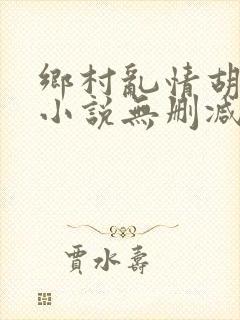 鄉村亂情胡
小說無刪減
賈水壽